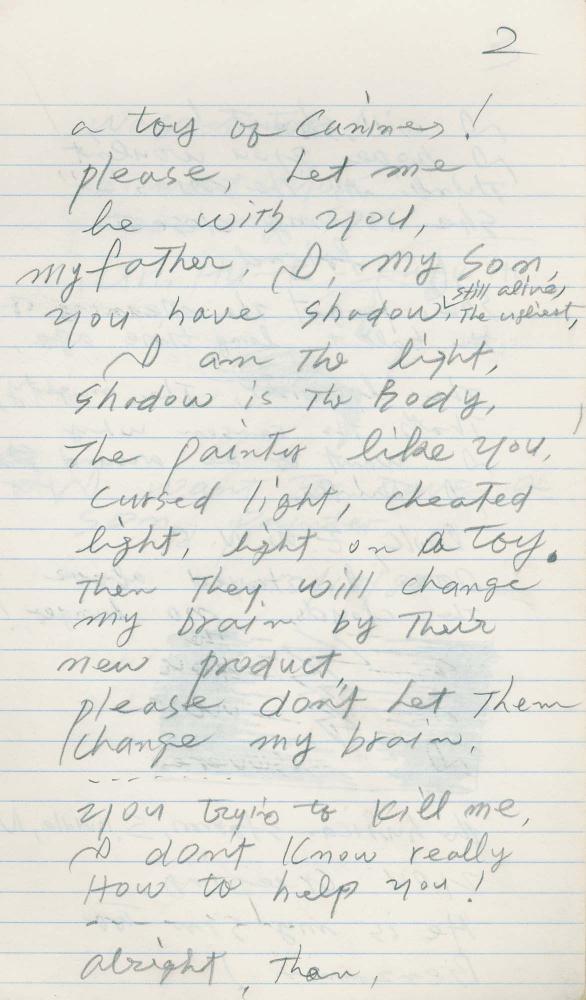 2
a toy of Canines!
please, Let me
be with you,
my father, I, my Son,
you have shadow, still alive,
The ugliest,
I am The light,
Shadow is The Body,
The painter like you,
cursed light, cheated
light, light on a Toy.
Then They will change
my brain by Their
new product,
please don't Let Them
change my brain,
- - - - - - - -
you trying to kill me,
I don't Know really
How to help you!
- - -
alright, Than,